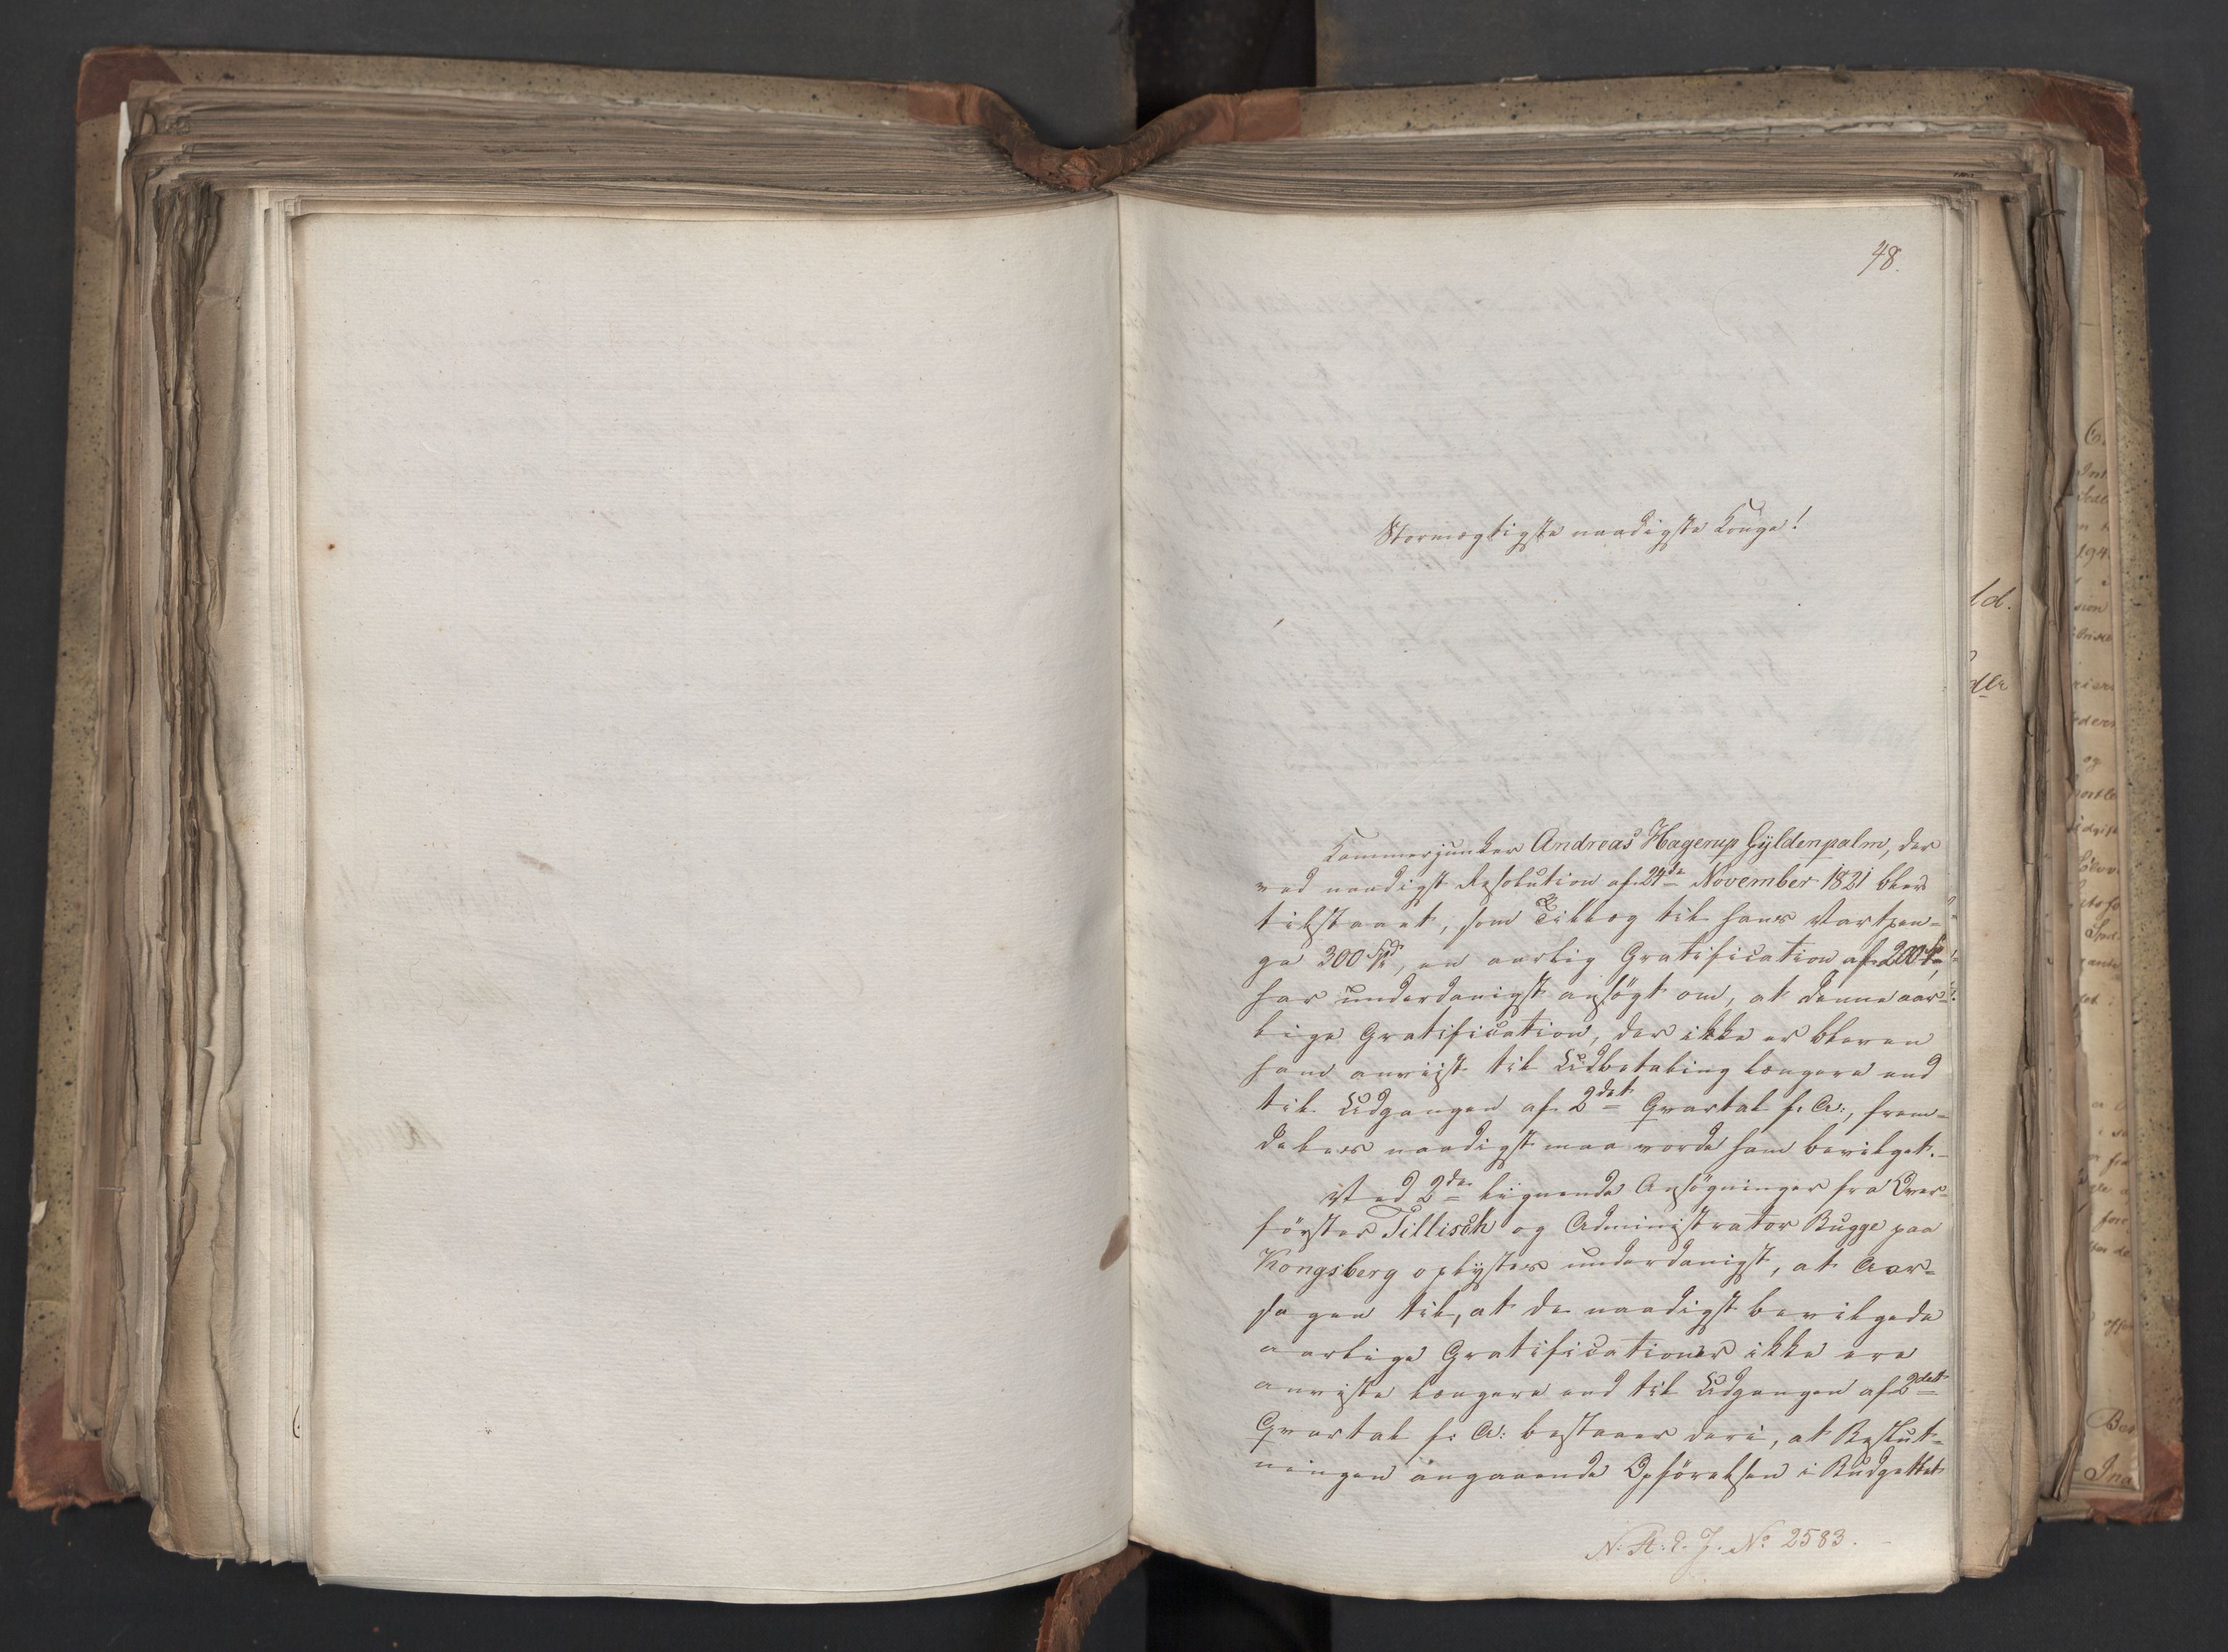 48.
Stormægtigste naadigste Konge!
Kammerjunker Andreas Hagerup Gyldenpalm, der
ved naadigst Resolution af 24de November 1821 blev
tilstaaet, som Tillæg til hans Vartpen-
ge 300 Spd, en aarlig Gratification af 200 Spd,
har underdanigst ansögt om, at denne aar-
lige Gratification, der ikke er bleven
ham anviist til Udbetaling længere end
til Udgangen af 2det Qvartal f: A:, frem-
deles naadigst maa vorde ham bevilget.
Ved 2de lignende Ansögninger fra Over-
förster Tillisch og Administrator Bugge paa
Kongsberg oplyses underdanigst, at Aar-
sagen til, at de naadigst bevilgede
aarlige Gratificationer ikke ere
anviste længere end til Udgangen af 2det
Qvartal f: A: bestaaer deri, at Beslut-
ningen angaaende Opförelsen i Budgettet
N: St: d: J: No 2583.
ld.